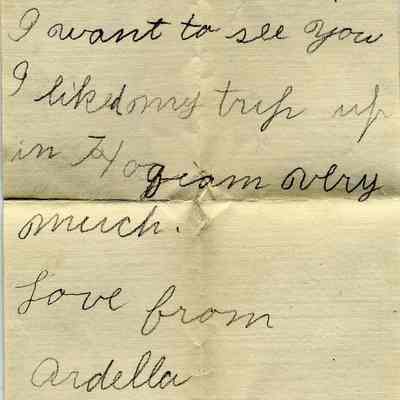 I want to see you
I liked my trip up
in Hoqiam very
much.
Love from
Ardella